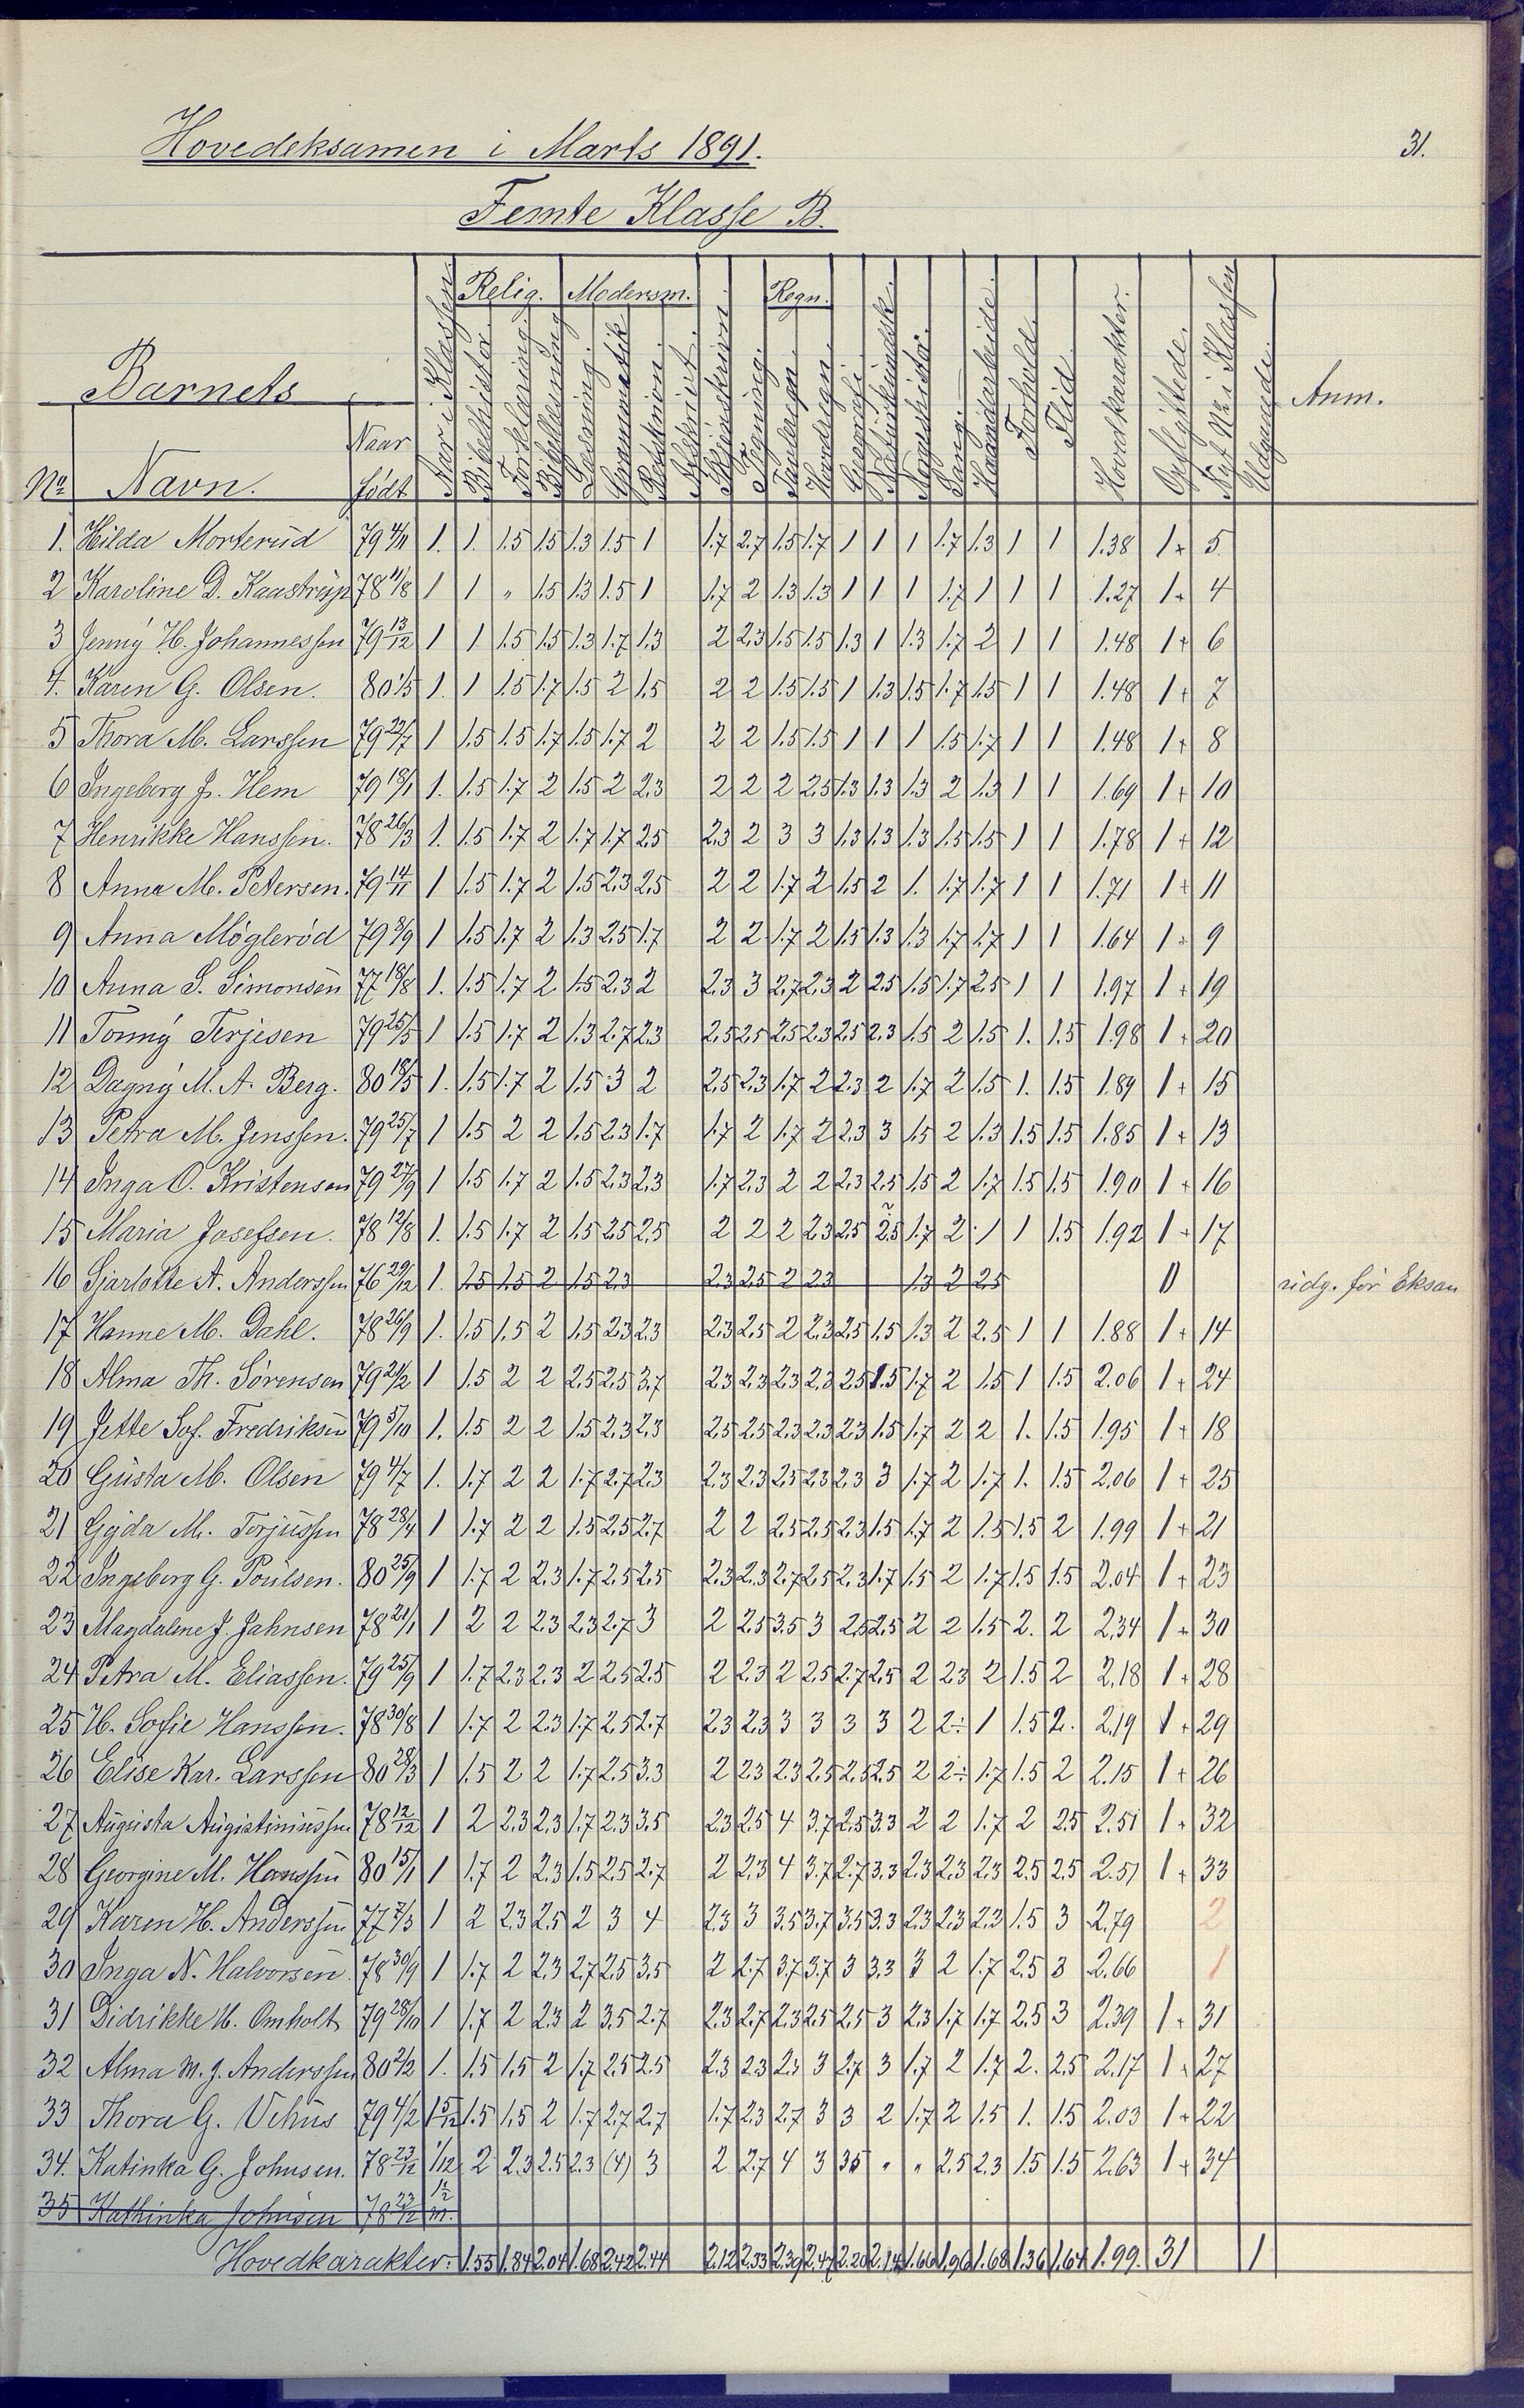 Hovedeksamen i Marts 1891.
31.
Femte Klasse B.
Relig. Modersm. Regn.
Barnets
No Navn. Naar født Aar i Klassen. Bibelhistor. Forklaring. Bibellæsning Læsning. Grammatik Retskrivn. Afskrivt. Skjönskrivn. Tegning. Tavleregn. Hovedregn. Geografi. Naturkundsk. Norgeshistor. Sang. Haandarbeide. Forhold. Flid Hovedkarakter. Opflyttede. Nyt No i Klassen Udgaaede. Anm.
1. Hilda Morterud 79 4/11 1. 1. 1.5 1.5 1.3 1.5 1 1.7 2.7 1.5 1.7 1 1 1 1.7 1.3 1 1 1.38 1+ 5
2 Karoline D. Kaastrup 78 11/8 1 1 " 1.5 1.3 1.5 1 1.7 2 1.3 1.3 1 1 1 1.7 1 1 1 1.27 1+ 4
3 Jenny H. Johannessen 79 13/12 1 1 1.5 1.5 1.3 1.7 1.3 2 2.3 1.5 1.5 1.3 1 1.3 1.7 2 1 1 1.48 1+ 6
4. Karen G. Olsen. 80 1/5 1. 1 1.5 1.7 1.5 2 1.5 2 2 1.5 1.5 1 1.3 1.5 1.7 1.5 1 1 1.48 1+ 7
5 Thora M. Larssen 79 22/7 1 1.5 1.5 1.7 1.5 1.7 2 2 2 1.5 1.5 1 1 1 1.5 1.7 1 1 1.48 1+ 8
6 Ingeborg J. Hem 79 18/1 1. 1.5 1.7 2 1.5 2 2.3 2 2 2 2.5 1.3 1.3 1.3 2 1.3 1 1 1.69 1+ 10
7 Henrikke Hanssen. 78 26/3 1. 1.5 1.7 2 1.7 1.7 2.5 2.3 2 3 3 1.3 1.3 1.3 1.5 1.5 1 1 1.78 1+ 12
8 Anna M. Petersen. 79 14/11 1 1.5 1.7 2 1.5 2.3 2.5 2 2 1.7 2 1.5 2 1. 1.7 1.7 1 1 1.71 1+ 11
9 Anna Möglerød 79 8/9 1 1.5 1.7 2 1.3 2.5 1.7 2 2 1.7 2 1.5 1.3 1.3 1.7 1.7 1 1 1.64 1+ 9
10 Anna S. Simonsen 77 18/8 1. 1.5 1.7 2 1.5 2.3 2 2.3 3 2.7 2.3 2 2.5 1.5 1.7 2.5 1 1 1.97 1+ 19
11 Tonny Terjesen 79 25/5 1 1.5 1.7 2 1.3 2.7 2.3 2.5 2.5 2.5 2.3 2.5 2.3 1.5 2 1.5 1. 1.5 1.98 1+ 20
12 Dagny M. A. Berg. 80 18/5 1. 1.5 1.7 2 1.5 3 2 2.5 2.3 1.7 2 2.3 2 1.7 2 1.5 1. 1.5 1.89 1+ 15
13 Petra M. Jenssen. 79 25/7 1 1.5 2 2 1.5 2.3 1.7 1.7 2 1.7 2 2.3 3 1.5 2 1.3 1.5 1.5 1.85 1+ 13
14 Inga O. Kristensen 79 27/9 1 1.5 1.7 2 1.5 2.3 2.3 1.7 2.3 2 2 2.3 2.5 1.5 2 1.7 1.5 1.5 1.90 1+ 16
15 Maria Josefsen. 78 12/8 1. 1.5 1.7 2 1.5 2.5 2.5 2 2 2 2.3 2.5 2.5 1.7 2 1 1 1.5 1.92 1+ 17
16 Sjarlotte A. Anderssen 76 29/12 1. 1.5 1.5 2 1.5 2.3 2.3 2.5 2 2.3 1.3 2 2.5 0 udg. för Eksam
17 Hanne M. Dahl. 78 26/9 1. 1.5 1.5 2 1.5 2.3 2.3 2.3 2.5 2 2.3 2.5 1.5 1.3 2 2.5 1 1 1.88 1+ 14
18 Alma Th. Sörensen 79 21/2 1 1.5 2 2 2.5 2.5 3.7 2.3 2.3 2.3 2.3 2.5 1.5 1.7 2 1.5 1 1.5 2.06 1+ 24
19 Jette Sof. Fredriksen 79 5/10 1. 1.5 2 2 1.5 2.3 2.3 2.5 2.5 2.3 2.3 2.3 1.5 1.7 2 2 1. 1.5 1.95 1+ 18
20 Gusta M. Olsen 79 4/7 1. 1.7 2 2 1.7 2.7 2.3 2.3 2.3 2.5 2.3 2.3 3 1.7 2 1.7 1. 1.5 2.06 1+ 25
21 Gyda M. Torjussen 78 28/4 1 1.7 2 2 1.5 2.5 2.7 2 2 2.5 2.5 2.3 1.5 1.7 2 1.5 1.5 2 1.99 1+ 21
22 Ingeborg G. Poulsen. 80 25/9 1 1.7 2 2.3 1.7 2.5 2.5 2.3 2.3 2.7 2.5 2.3 1.7 1.5 2 1.7 1.5 1.5 2.04 1+ 23
23 Magdalene J. Jahnsen 78 21/1 1 2 2 2.3 2.3 2.7 3 2 2.5 3.5 3 2.5 2.5 2 2 1.5 2. 2 2.34 1+ 30
24 Petra M. Eliassen. 79 25/9 1 1.7 2.3 2.3 2 2.5 2.5 2 2.3 2 2.5 2.7 2.5 2 2.3 2 1.5 2 2.18 1+ 28
25 H. Sofie Hanssen. 78 30/8 1 1.7 2 2.3 1.7 2.5 2.7 2.3 2.3 3 3 3 3 2 2÷ 1 1.5 2. 2.19 1+ 29
26 Elise Kar. Larssen 80 28/3 1 1.5 2 2 1.7 2.5 3.3 2 2.3 2.3 2.5 2.5 2.5 2 2÷ 1.7 1.5 2 2.15 1+ 26
27 Augusta Augistiniussen 78 12/12 1 2 2.3 2.3 1.7 2.3 3.5 2.3 2.5 4 3.7 2.5 3.3 2 2 1.7 2 2.5 2.51 1+ 32
28 Georgine M. Hanssen 80 15/1 1 1.7 2 2.3 1.5 2.5 2.7 2 2.3 4 3.7 2.7 3.3 2.3 2.3 2.3 2.5 2.5 2.51 1+ 33
29 Karen H. Anderssen 77 7/3 1 2 2.3 2.5 2 3 4 2.3 3 3.5 3.7 3.5 3.3 2.3 2.3 2.3 1.5 3 2.79 2
30 Inga N. Halvorsen 78 30/9 1 1.7 2 2.3 2.7 2.5 3.5 2 2.7 3.7 3.7 3 3.3 3 2 1.7 2.5 3 2.66 1
31 Didrikke H. Omholt 79 28/10 1 1.7 2 2.3 2 3.5 2.7 2.3 2.7 2.3 2.5 2.5 3 2.3 1.7 1.7 2.5 3 2.39 1+ 31
32 Alma M. J. Anderssen 80 2/2 1. 1.5 1.5 2 1.7 2.5 2.5 2.3 2.3 2.3 3 2.7 3 1.7 2 1.7 2. 2.5 2.17 1+ 27
33 Thora G. Vehus 79 4/2 1 5/12 1.5 1.5 2 1.7 2.7 2.7 1.7 2.3 2.7 3 3 2 1.7 2 1.5 1. 1.5 2.03 1+ 22
34. Katinka G. Johnsen. 78 23/12 1/12 2 2.3 2.5 2.3 (4) 3 2 2.7 4 3 3.5 " " 2.5 2.3 1.5 1.5 2.63 1+ 34
35 Kathinka Johnsen 78 23/12 1 1/2 m.
Hovedkarakter: 1.55 1.84 2.04 1.68 2.42 2.44 2.12 2.33 2.39 2.47 2.20 2.14 1.66 1.96 1.68 1.36 1.64 1.99. 31 1